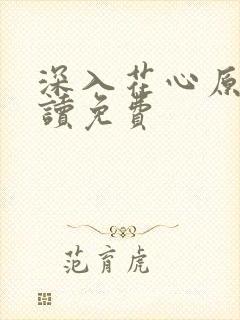 深入花心原
讀免費
范育虎